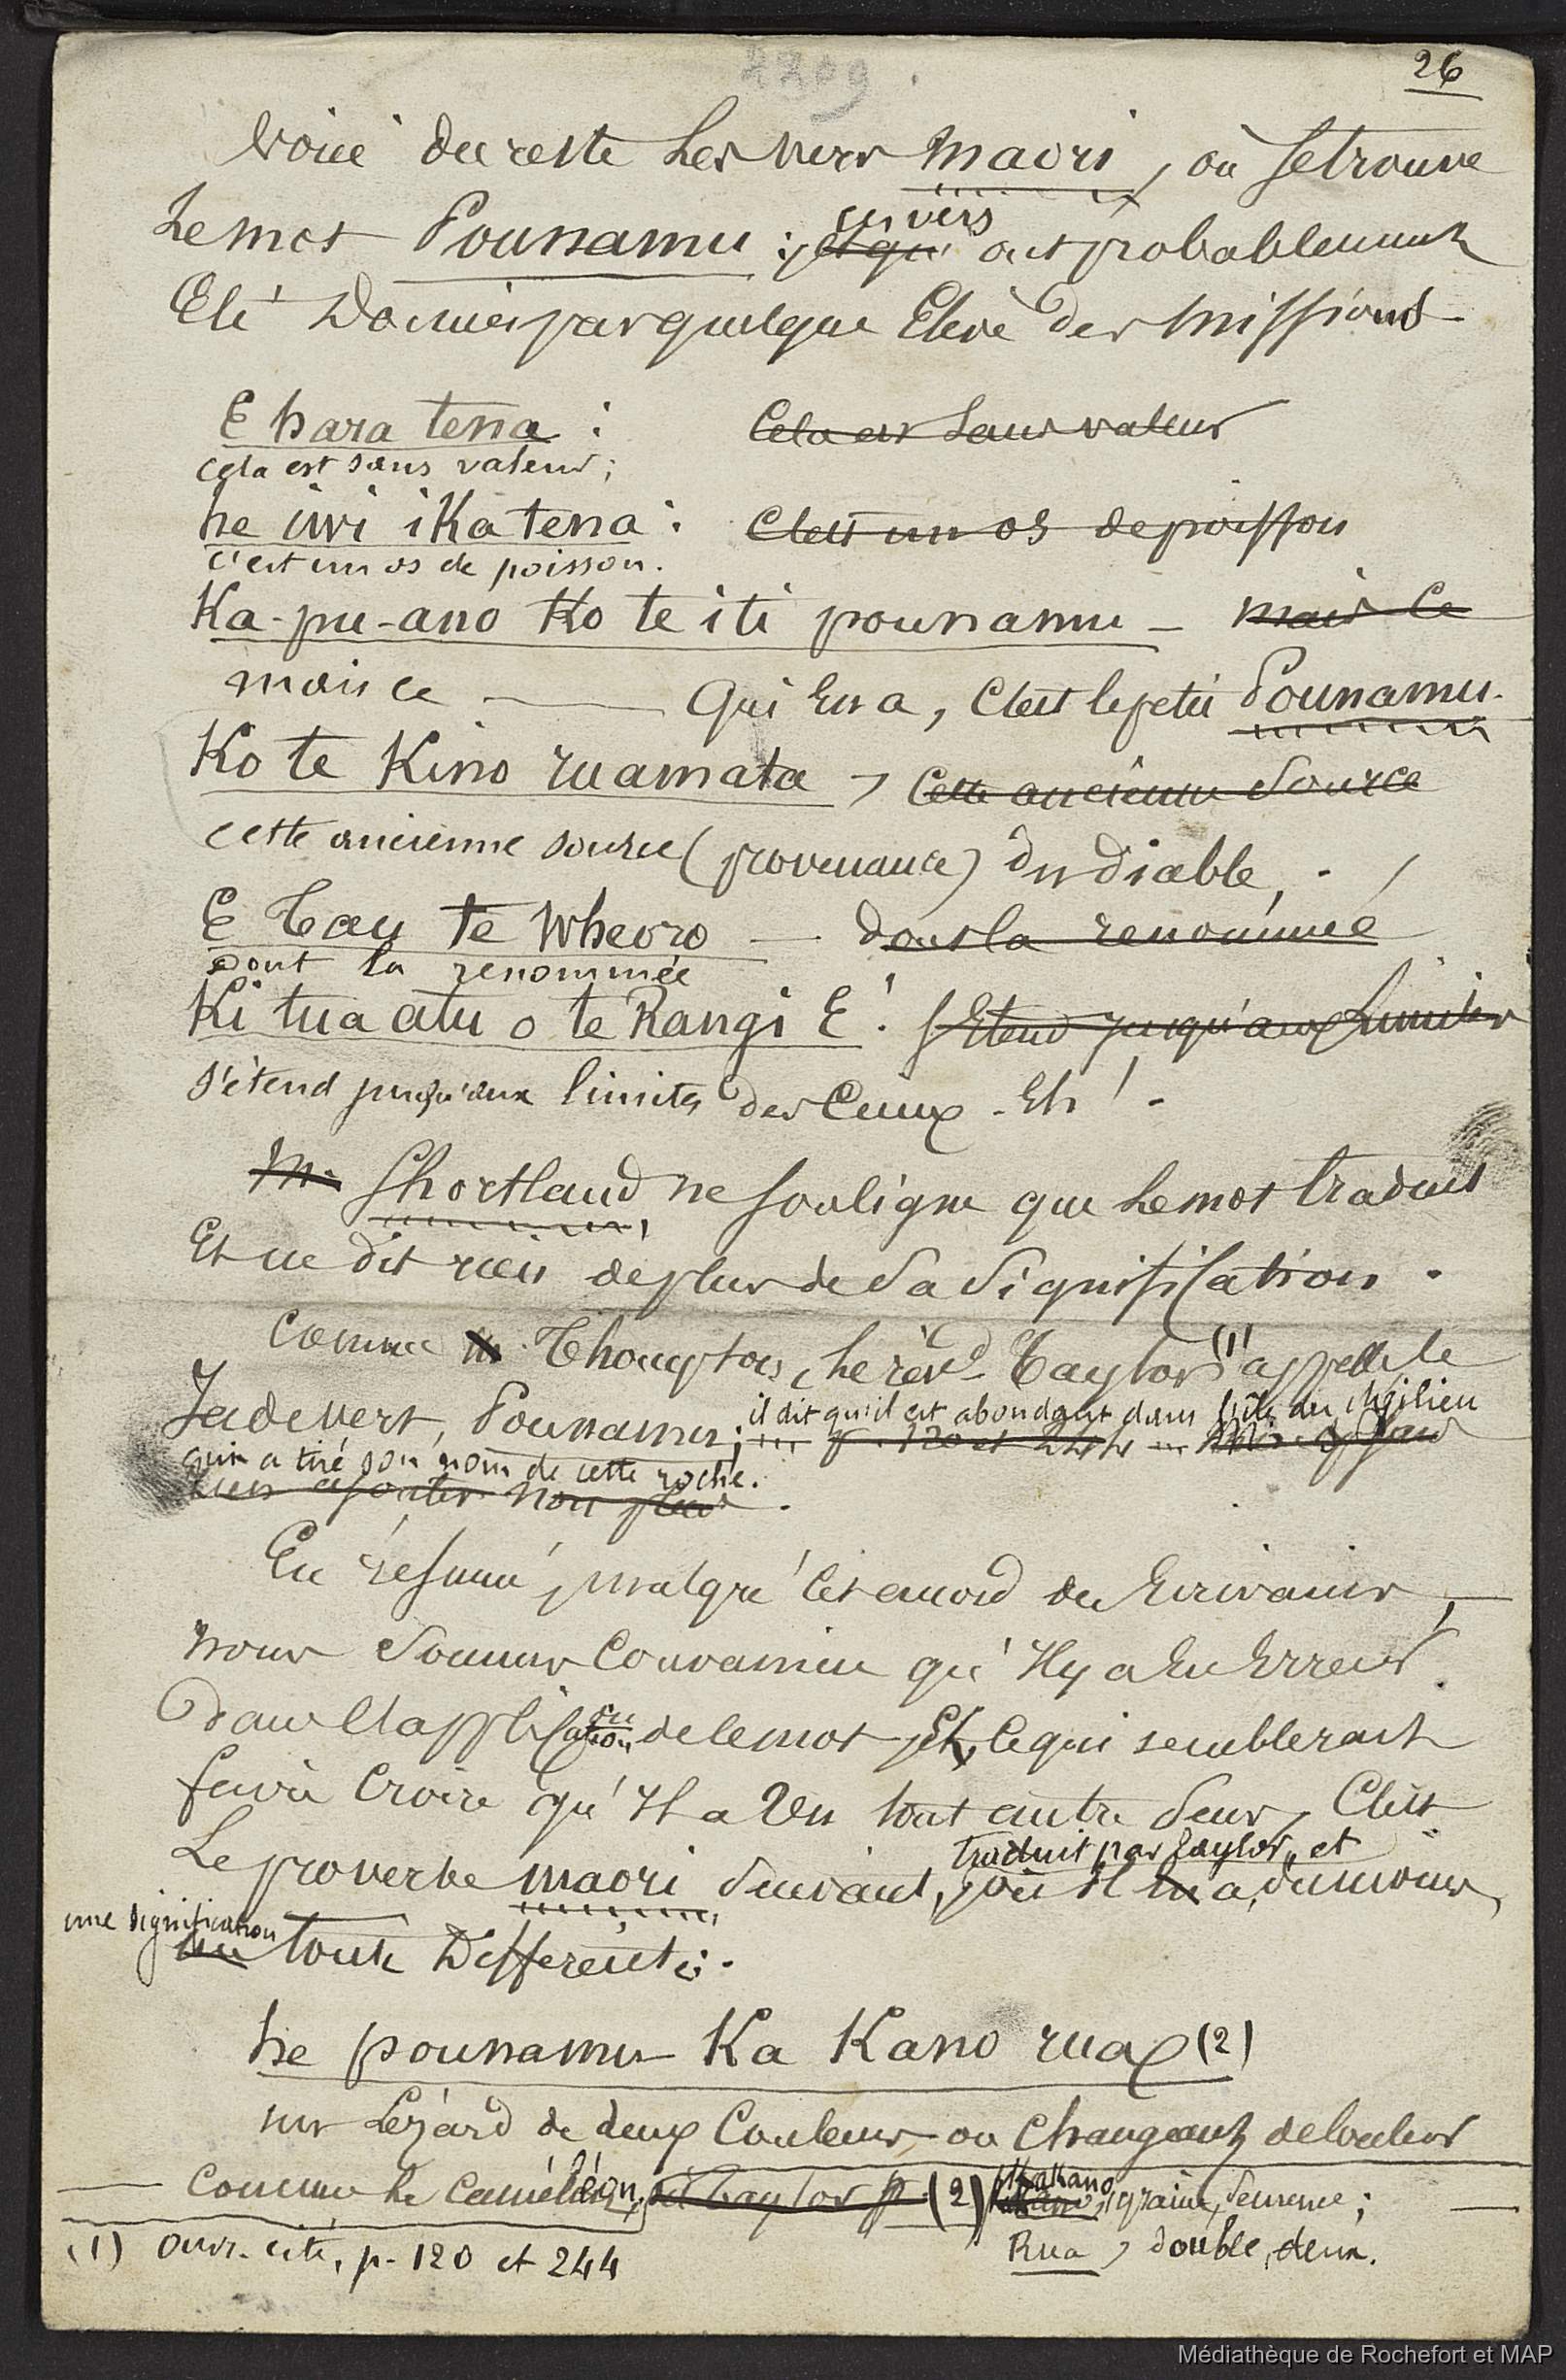 2209.
26
Voici du reste les vers maori, où se trouve
le mot Pounamu : et qui ces vers ont probablement
été donnés par quelque élève des missions
E hara tena : Cela est sans valeur
cela est sans valeur ;
he iwi iKa tena : C'est un os de poisson
c'est un os de poisson.
Ka-pu-ano Ko te iti pounamu - mais ce
mais ce — qui en a, c'est le petit Pounamu.
Ko te Kino ruamata, Cette ancienne source
cette ancienne source (provenance) du diable,
E Tau te Wheoro — dont la renommée
dont la renommée
Ki tua atu o te Rangi E ! s'étend jusqu'aux limites
s'étend jusqu'aux limites des Cieux - Eh ! -
M. Shortland ne souligne que le mot traduit
et ne dit rien de plus de sa signification.
Comme M. Thompson, le rév.d Taylor (1) appelle
Jade vert, Pounamu ; il dit qu'il est abondant dans l'île du Milieu
p. 120 et 244
qui a tiré son nom de cette roche.
rien ajouter non plus.
En résumé, malgré cet accord des écrivains,
nous sommes convaincu qu'il y a eu erreur
dans l'application de ce mot, et, ce qui semblerait
faire croire qu'il a un tout autre sens, c'est
le proverbe maori suivant, traduit par Taylor, et où il a, du moins,
une signification
un toute différente ; -
he pounamu Ka Kano rua (2)
un Lézard de deux Couleurs ou Changeant de couleur
— Comme le Caméléon, et Taylor p. (2) Kakano, graine, semence ; —
(1) Ouvr. cité, p. 120 et 244
Rua, double, deux.
Médiathèque de Rochefort et MAP